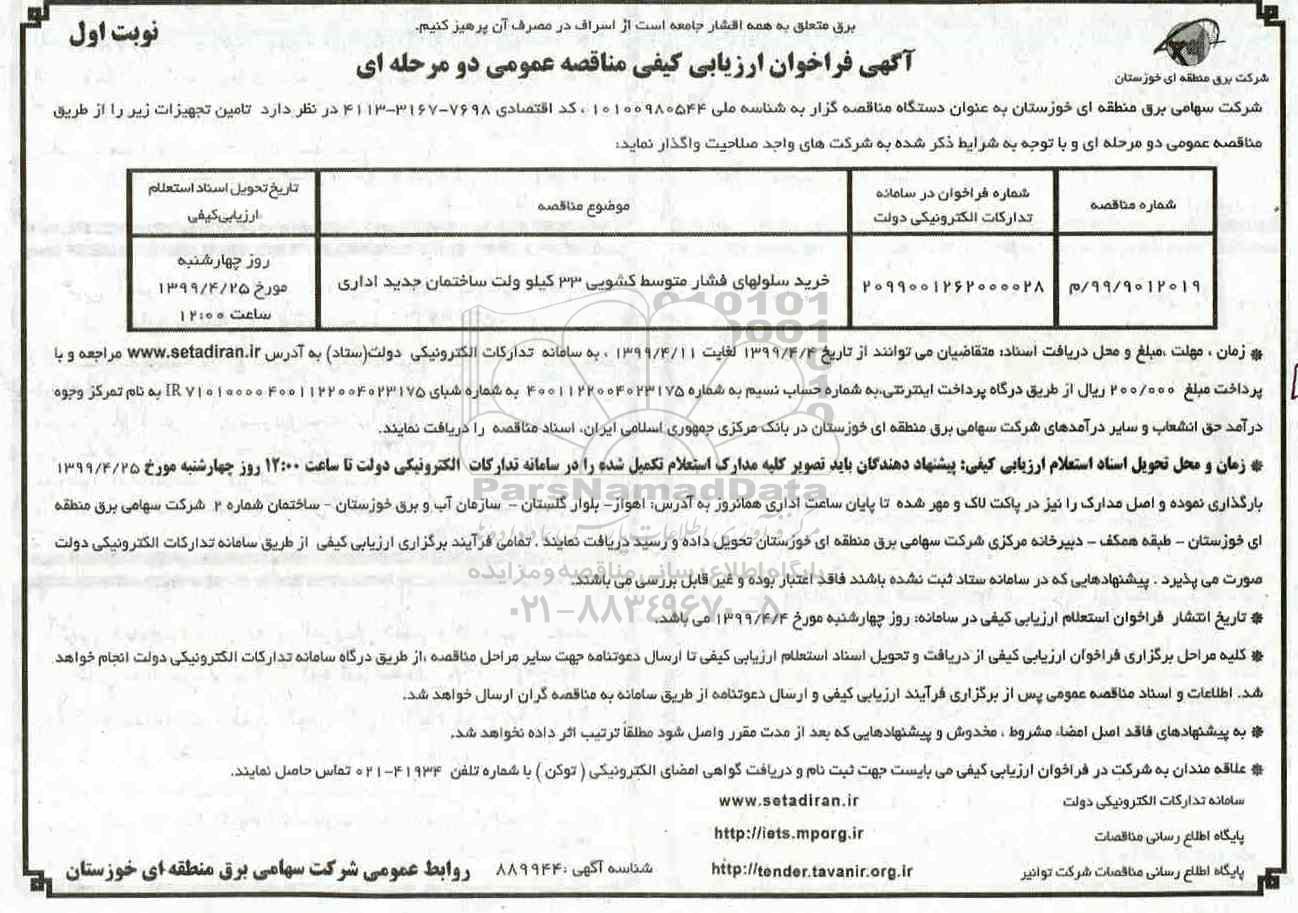 برق متعلق به همه اقشار جامعه است از اسراف در مصرف آن پرهیز کنیم.
نوبت اول
آگهی فراخوان ارزیابی کیفی مناقصه عمومی دو مرحله ای
شرکت برق منطقه ای خوزستان
شرکت سهامی برق منطقه ای خوزستان به عنوان دستگاه مناقصه گزار به شناسه ملی ۱۰۱۰۰۹۸۰۵۴۴ ، کد اقتصادی ۷۶۹۸-۳۱۶۷-۴۱۱۳ در نظر دارد تامین تجهیزات زیر را از طریق
مناقصه عمومی دو مرحله ای و با توجه به شرایط ذکر شده به شرکت های واجد صلاحیت واگذار نماید:
شماره مناقصه
شماره فراخوان در سامانه
تدارکات الکترونیکی دولت
موضوع مناقصه
تاریخ تحویل اسناد استعلام
ارزیابی کیفی
۹۹/۹۰۱۲۰۱۹/م
۲۰۹۹۰۰۱۲۶۲۰۰۰۰۲۸
خرید سلولهای فشار متوسط کشویی ۳۳ کیلو ولت ساختمان جدید اداری
روز چهارشنبه
مورخ ۱۳۹۹/۴/۲۵
ساعت ۱۲:۰۰
* زمان ، مهلت ،مبلغ و محل دریافت اسناد: متقاضیان می توانند از تاریخ ۱۳۹۹/۴/۴ لغایت ۱۳۹۹/۴/۱۱ ، به سامانه تدارکات الکترونیکی دولت(ستاد) به آدرس www.setadiran.ir مراجعه و با
پرداخت مبلغ ۲۰۰/۰۰۰ ریال از طریق درگاه پرداخت اینترنتی،به شماره حساب نسیم به شماره ۴۰۰۱۱۲۲۰۰۴۰۲۳۱۷۵ به شماره شبای IR ۷۱۰۱۰۰۰۰۴۰۰۱۱۲۲۰۰۴۰۲۳۱۷۵ به نام تمرکز وجوه
درآمد حق انشعاب و سایر درآمدهای شرکت سهامی برق منطقه ای خوزستان در بانک مرکزی جمهوری اسلامی ایران، اسناد مناقصه را دریافت نمایند.
* زمان و محل تحویل اسناد استعلام ارزیابی کیفی: پیشنهاد دهندگان باید تصویر کلیه مدارک استعلام تکمیل شده را در سامانه تدارکات الکترونیکی دولت تا ساعت ۱۲:۰۰ روز چهارشنبه مورخ ۱۳۹۹/۴/۲۵
بارگذاری نموده و اصل مدارک را نیز در پاکت لاک و مهر شده تا پایان ساعت اداری همانروز به آدرس: اهواز- بلوار گلستان - سازمان آب و برق خوزستان - ساختمان شماره ۲ شرکت سهامی برق منطقه
ای خوزستان - طبقه همکف - دبیرخانه مرکزی شرکت سهامی برق منطقه ای خوزستان تحویل داده و رسید دریافت نمایند . تمامی فرآیند برگزاری ارزیابی کیفی از طریق سامانه تدارکات الکترونیکی دولت
صورت می پذیرد . پیشنهادهایی که در سامانه ستاد ثبت نشده باشند فاقد اعتبار بوده و غیر قابل بررسی می باشند.
* تاریخ انتشار فراخوان استعلام ارزیابی کیفی در سامانه: روز چهارشنبه مورخ ۱۳۹۹/۴/۴ می باشد.
* کلیه مراحل برگزاری فراخوان ارزیابی کیفی از دریافت و تحویل اسناد استعلام ارزیابی کیفی تا ارسال دعوتنامه جهت سایر مراحل مناقصه ،از طریق درگاه سامانه تدارکات الکترونیکی دولت انجام خواهد
شد. اطلاعات و اسناد مناقصه عمومی پس از برگزاری فرآیند ارزیابی کیفی و ارسال دعوتنامه از طریق سامانه به مناقصه گران ارسال خواهد شد.
* به پیشنهادهای فاقد اصل امضاء، مشروط ، مخدوش و پیشنهادهایی که بعد از مدت مقرر واصل شود مطلقاً ترتیب اثر داده نخواهد شد.
* علاقه مندان به شرکت در فراخوان ارزیابی کیفی می بایست جهت ثبت نام و دریافت گواهی امضای الکترونیکی ( توکن ) با شماره تلفن ۴۱۹۳۴-۰۲۱ تماس حاصل نمایند.
سامانه تدارکات الکترونیکی دولت www.setadiran.ir
پایگاه اطلاع رسانی مناقصات http://iets.mporg.ir
پایگاه اطلاع رسانی مناقصات شرکت توانیر http://tender.tavanir.org.ir
شناسه آگهی :۸۸۹۹۴۴
روابط عمومی شرکت سهامی برق منطقه ای خوزستان
ParsNamadData
پایگاه اطلاع رسانی مناقصه و مزایده
۰۲۱-۸۸۳۴۹۶۷۰-۵